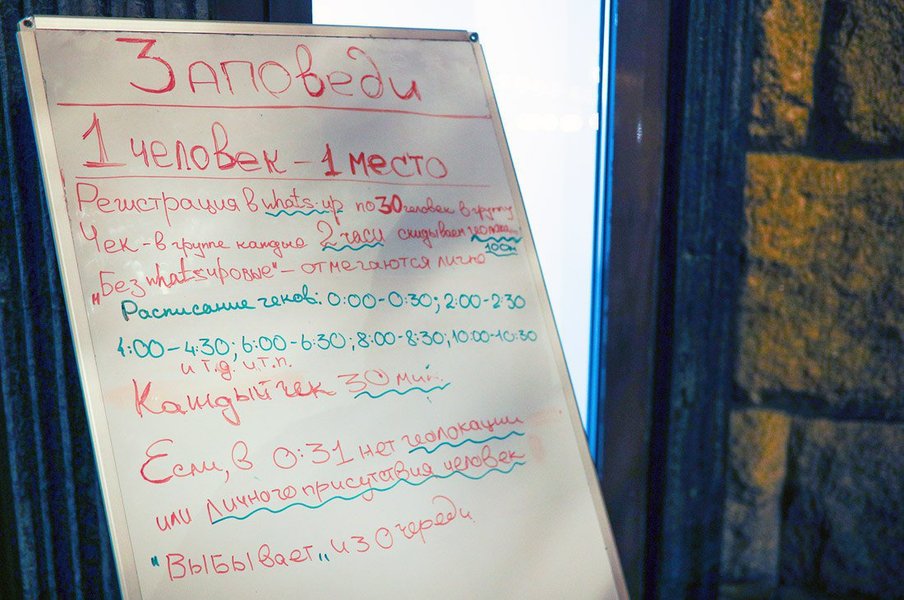 Заповеди
1 человек - 1 место
Регистрация в whats-up по 30 человек в группу
Чек - в группе каждые 2 часа скидываем геолокац.
100м
"Безwhatsupовые" - отмечаются лично
Расписание чеков: 0:00-0:30; 2:00-2:30
4:00-4:30; 6:00-6:30; 8:00-8:30; 10:00-10:30
и т.д. и.т.п.
Каждый чек 30 мин.
Если, в 0:31 нет геолокации
или личного присутствия человек
"Выбывает" из очереди